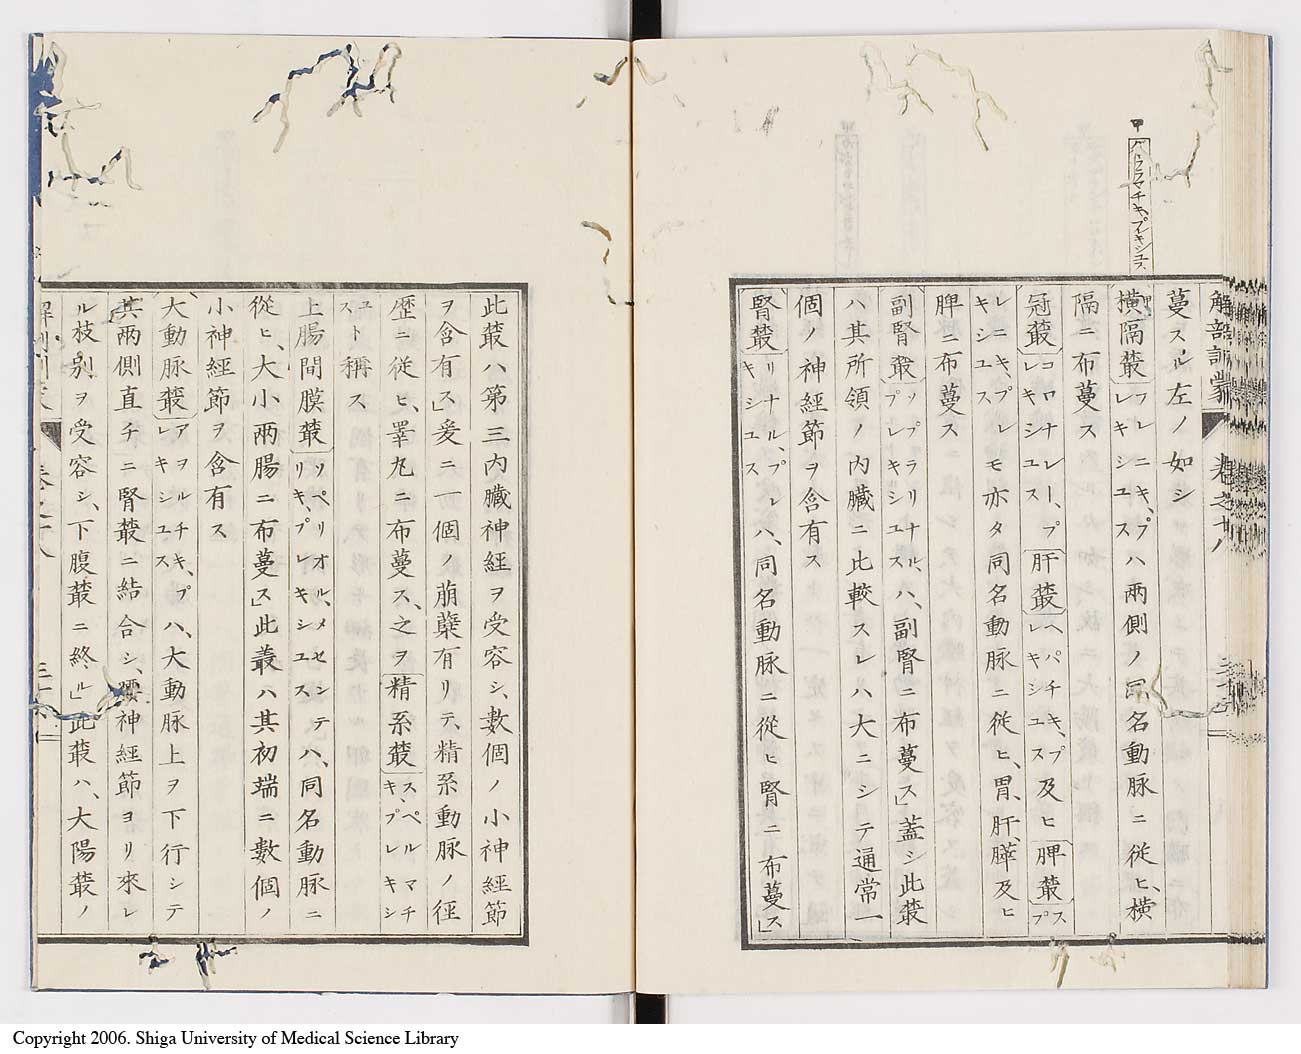 甲
ハウラマチキ、プレキシユス
解剖訓蒙 卷之十八
蔓スル左ノ如シ
横隔叢フレニキ、プレキシユスハ兩側ノ同名動脈ニ從ヒ、橫
隔ニ布蔓ス
冠叢コロナレー、プレキシユス肝叢ヘパチキ、プレキシユス及ヒ脾叢スプ
レニキ、プレキシユスモ亦タ同名動脈ニ從ヒ、胃、肝、膵及ヒ
脾ニ布蔓ス
副腎叢ソップラリナル、プレキシユスハ、副腎ニ布蔓ス」蓋シ此叢
ハ其所領ノ内臓ニ比較スレハ大ニシテ通常一
個ノ神經節ヲ含有ス
腎叢リナル、プレキシユスハ、同名動脈ニ從ヒ腎ニ布蔓ス」
此叢ハ第三内臓神經ヲ受容シ、數個ノ小神經節
ヲ含有ス」爰ニ一個ノ崩蘖有リテ、精系動脈ノ徑
歷ニ從ヒ、睪丸ニ布蔓ス、之ヲ精系叢スペルマチキ、プレキシ
ユスト稱ス
上腸間膜叢ソペリオル、メセンテリキ、プレキシユスハ、同名動脈ニ
從ヒ、大小兩腸ニ布蔓ス」此叢ハ其初端ニ數個ノ
小神經節ヲ含有ス
大動脈叢アヲルチキ、プレキシユスハ、大動脈上ヲ下行シテ
其兩側直チニ腎叢ニ結合シ、腰神經節ヨリ來レ
ル枝別ヲ受容シ、下腹叢ニ終ル」此叢ハ、大陽叢ノ